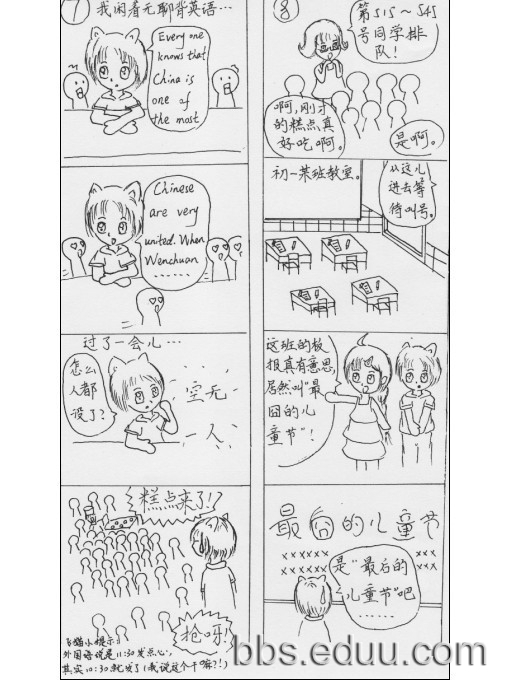 7
我闲着无聊背英语…
Every one
knows that
China is
one of
the most
Chinese
are very
united. When
Wenchuan
过了一会儿…
怎么
人都
没了?
空无
一人
糕点来了!?
抢呀!
飞猫小提示:
外国语说是11:30发点心,
其实10:30就发了(我说这个干嘛?!)
8
第515~545
号同学排
队!
啊,刚才
的糕点真
好吃啊。
是啊。
初一某班教室。
从这儿
进去等
待叫号。
这班的板
报真有意思,
居然叫"最
囧的儿
童节"!
最囧的儿童节
×××××
××××××
×××
××××
是"最后的
儿童节"吧
bbs.eduu.com